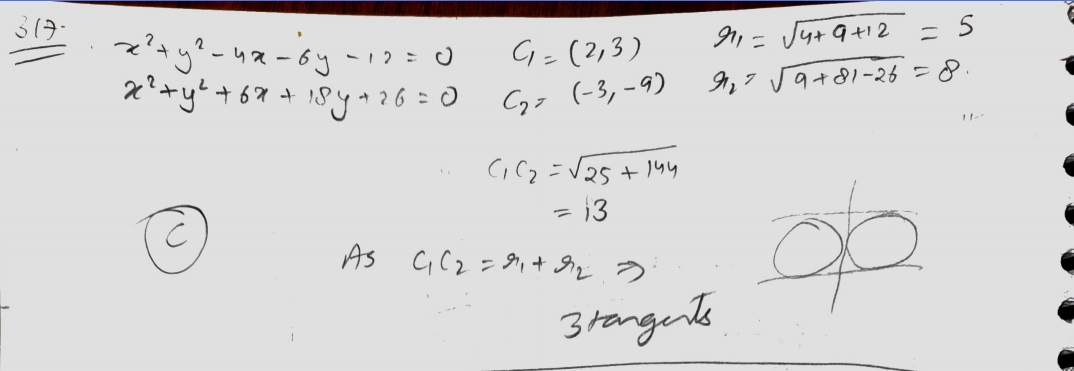 317.
x²+y²-4x-6y-12=0 C₁=(2,3) r₁=√4+9+12 = 5
x²+y²+6x+18y+26=0 C₂=(-3,-9) r₂=√9+81-26 = 8.
C₁C₂=√25+144
= 13
C
As C₁C₂=r₁+r₂ ⇒
3 tangents